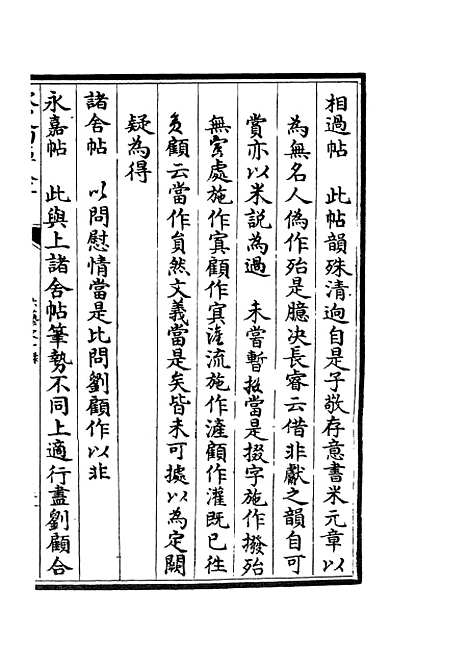 相過帖　此帖韻殊清逈自是子敬存意書米元章以
為無名人偽作殆是臆决長睿云借非獻之韻自可
賞亦以米説為過　未嘗暫掇當是掇字施作撥殆
無寔處施作寘顧作寔滻流施作滻顧作灌既已徃
負顧云當作負然文義當是矣皆未可據以為定闕
疑為得
諸舍帖　以問慰情當是比問劉顧作以非
永嘉帖　此與上諸舍帖筆勢不同上適行盡劉顧合